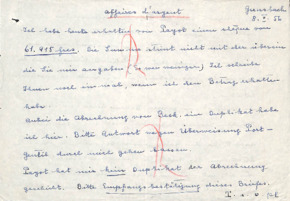 affaires d'argent
Grenzbach
8. X. 56
Ich habe heute erhalten von Payot einen chèque von
61.915 frcs. Die Summe stimmt nicht mit der überein
die Sie mir angaben Ich schreibe
Ihnen noch ein mal, wenn ich den Betrag erhalten
habe.
Anbei die Abrechnung von Beck. ein Duplikat habe
ich hier. Bitte Antwort wegen Überweisung Post-
durch mich gehen lassen.
Payot hat mir kein Duplikat der Abrechnung
geschickt. Bitte Empfangsbestätigung dieses Briefes.